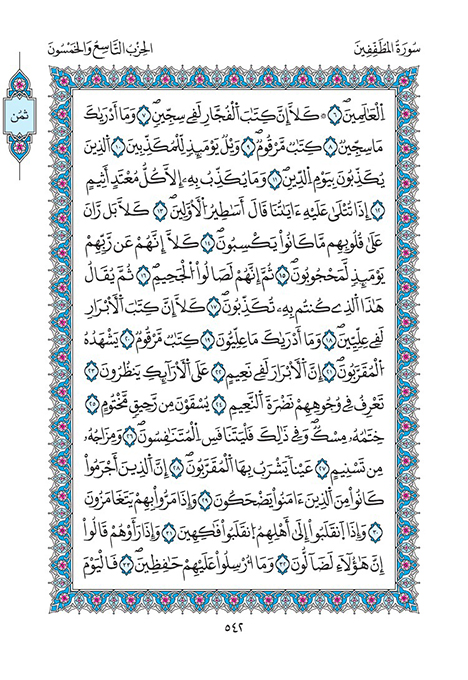 سُورَةُ المُطَفِّفِينَ
الحِزْبُ التَّاسِعُ وَالخَمْسُونَ
ثُمُن
اَ۬لْعَٰلَمِينَۖ ٦ ۞كَلَّآ إِنَّ كِتَٰبَ اَ۬لْفُجّ۪ارِ لَفِے سِجِّينٖۖ ٧ وَمَآ أَدْر۪يٰكَ
مَا سِجِّينٞۖ ٨ كِتَٰبٞ مَّرْقُومٞۖ ٩ وَيْلٞ يَوْمَئِذٖ لِّلْمُكَذِّبِينَ ١٠ اَ۬لذِينَ
يُكَذِّبُونَ بِيَوْمِ اِ۬لدِّينِۖ ١١ وَمَا يُكَذِّبُ بِهِۦٓ إِلَّا كُلُّ مُعْتَدٍ اَثِيمٍ
١٢ اِذَا تُتْل۪يٰ عَلَيْهِ ءَايَٰتُنَا قَالَ أَسَٰطِيرُ اُ۬لَاوَّلِينَۖ ١٣ كَلَّا بَل رَّانَ
عَلَيٰ قُلُوبِهِم مَّا كَانُواْ يَكْسِبُونَۖ ١٤ كَلَّآ إِنَّهُمْ عَن رَّبِّهِمْ
يَوْمَئِذٖ لَّمَحْجُوبُونَۖ ١٥ ثُمَّ إِنَّهُمْ لَصَالُواْ اُ۬لْجَحِيمِۖ ١٦ ثُمَّ يُقَالُ
هَٰذَا اَ۬لذِے كُنتُم بِهِۦ تُكَذِّبُونَۖ ١٧ كَلَّآ إِنَّ كِتَٰبَ اَ۬لَابْر۪ارِ
لَفِے عِلِّيِّينَۖ ١٨ وَمَآ أَدْر۪يٰكَ مَا عِلِّيُّونَۖ ١٩ كِتَٰبٞ مَّرْقُومٞ ٢٠ يَشْهَدُهُ
اُ۬لْمُقَرَّبُونَۖ ٢١ إِنَّ اَ۬لَابْرَارَ لَفِے نَعِيمٍ ٢٢ عَلَي اَ۬لَارَآئِكِ يَنظُرُونَ ٢٣
تَعْرِفُ فِے وُجُوهِهِمْ نَضْرَةَ اَ۬لنَّعِيمِۖ ٢٤ يُسْقَوْنَ مِن رَّحِيقٖ مَّخْتُومٍ ٢٥
خِتَٰمُهُۥ مِسْكٞۖ وَفِے ذَٰلِكَ فَلْيَتَنَافَسِ اِ۬لْمُتَنَٰفِسُونَۖ ٢٦ وَمِزَاجُهُۥ
مِن تَسْنِيمٍ ٢٧ عَيْناٗ يَشْرَبُ بِهَا اَ۬لْمُقَرَّبُونَۖ ٢٨ إِنَّ اَ۬لذِينَ أَجْرَمُواْ
كَانُواْ مِنَ اَ۬لذِينَ ءَامَنُواْ يَضْحَكُونَ ٢٩ وَإِذَا مَرُّواْ بِهِمْ يَتَغَامَزُونَ
٣٠ وَإِذَا اَ۪نقَلَبُوٓاْ إِلَيٰٓ أَهْلِهِمُ اُ۪نقَلَبُواْ فَٰكِهِينَ ٣١ وَإِذَا رَأَوْهُمْ قَالُوٓاْ
إِنَّ هَٰٓؤُلَآءِ لَضَآلُّونَ ٣٢ وَمَآ أُرْسِلُواْ عَلَيْهِمْ حَٰفِظِينَۖ ٣٣ فَالْيَوْمَ
٥٤٢